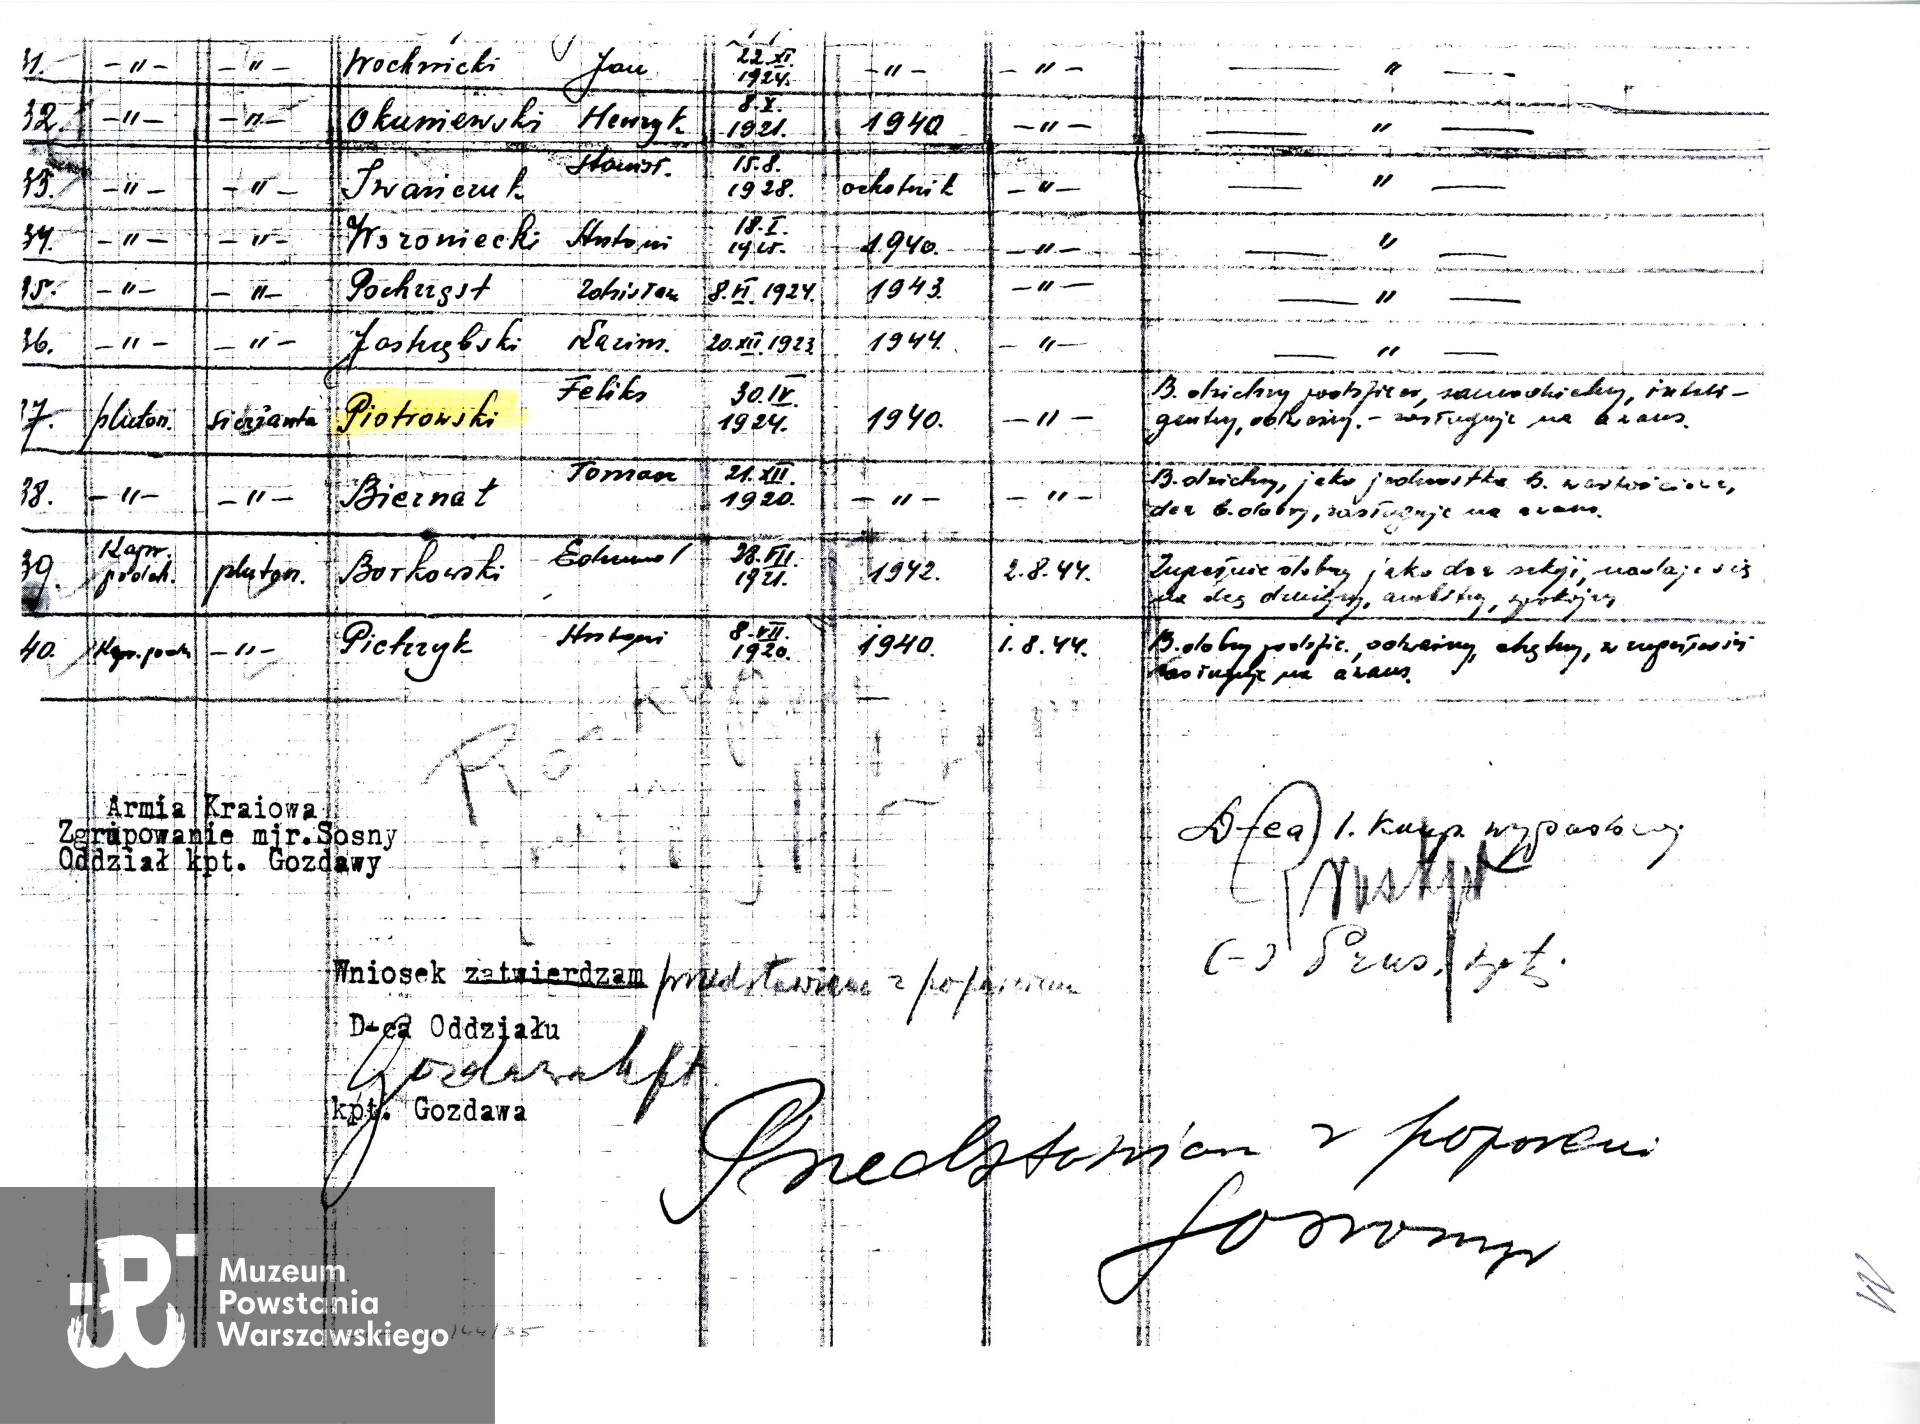 31. –„– –„– Wochnicki Jan 22.XI. 1924. –„– –„– — „ —
32. –„– –„– Okuniewski Henryk 8.X. 1921. 1940 –„– — „ —
33. –„– –„– Iwańczuk Stanisł. 15.8. 1928. ochotnik –„– — „ —
34. –„– –„– Woroniecki Antoni 18.I. 1925. 1940. –„– — „ —
35. –„– –„– Pochrzęst Zdzisław 8.VI.1924. 1943. –„– — „ —
36. –„– –„– Jastrzębski Kazim. 20.XII.1923 1944. –„– — „ —
37. pluton. sierżanta Piotrowski Feliks 30.IV 1924. 1940. –„– B. dzielny podoficer, samodzielny, inteli-
gentny, odważny. – zasługuje na awans.
38. –„– –„– Biernat Tomasz 21.XII. 1920. –„– –„– B. dzielny, jako jednostka b. wartościowa,
dca b. dobry, zasługuje na awans.
39. Kapr. podch. pluton. Borkowski Edmund 28.VII. 1921. 1942. 2.8.44. Zupełnie dobry jako dca sekcji, nadaje się
na dcę drużyny, ambitny, spokojny
40. Kapr. podch –„– Pietrzyk Antoni 8.VII. 1920. 1940. 1.8.44. B. dobry podofic., odważny, chętny, w zupełności
zasługuje na awans.
Armia Kraiowa
Zgrupowanie mjr.Sosny
Oddział kpt. Gozdawy
D-ca 1. komp. wypadowej
(-) Prus,
Wniosek zatwierdzam przedstawiam z poparciem
D-ca Oddziału
Gozdawa kpt.
kpt. Gozdawa
Przedstawiam z poparciem
Sosna mjr
Muzeum
Powstania
Warszawskiego
/44/35